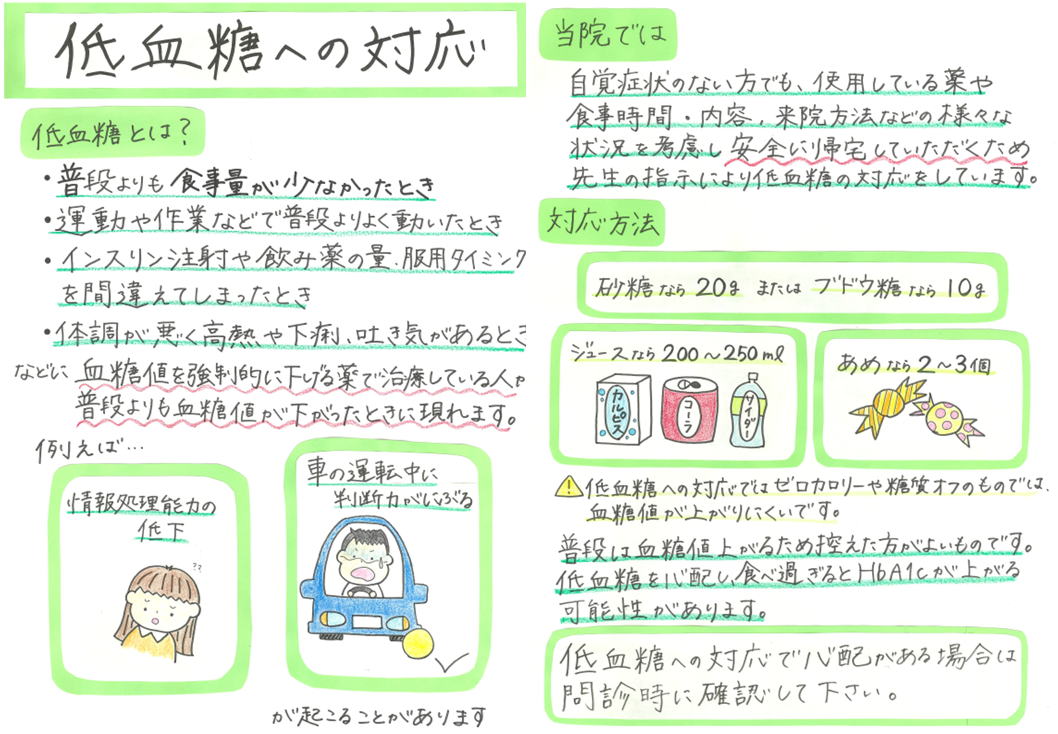 低血糖への対応
低血糖とは?
・普段よりも食事量が少なかったとき
・運動や作業などで普段よりよく動いたとき
・インスリン注射や飲み薬の量、服用タイミング
を間違えてしまったとき
・体調が悪く高熱や下痢、吐き気があるとき
などに 血糖値を強制的に下げる薬で治療している人が
普段よりも血糖値が下がったときに現れます。
例えば…
情報処理能力の
低下
??
車の運転中に
判断力がにぶる
が起こることがあります
当院では
自覚症状のない方でも、使用している薬や
食事時間・内容、来院方法などの様々な
状況を考慮し安全に帰宅していただくため
先生の指示により低血糖の対応をしています。
対応方法
砂糖なら20g または ブドウ糖なら10g
ジュースなら200~250ml
カルピス
コーラ
サイダー
あめなら2~3個
⚠低血糖への対応ではゼロカロリーや糖質オフのものでは、
血糖値が上がりにくいです。
普段は血糖値上がるため控えた方がよいものです。
低血糖を心配し、食べ過ぎるとHbA1cが上がる
可能性があります。
低血糖への対応で心配がある場合は
問診時に確認して下さい。